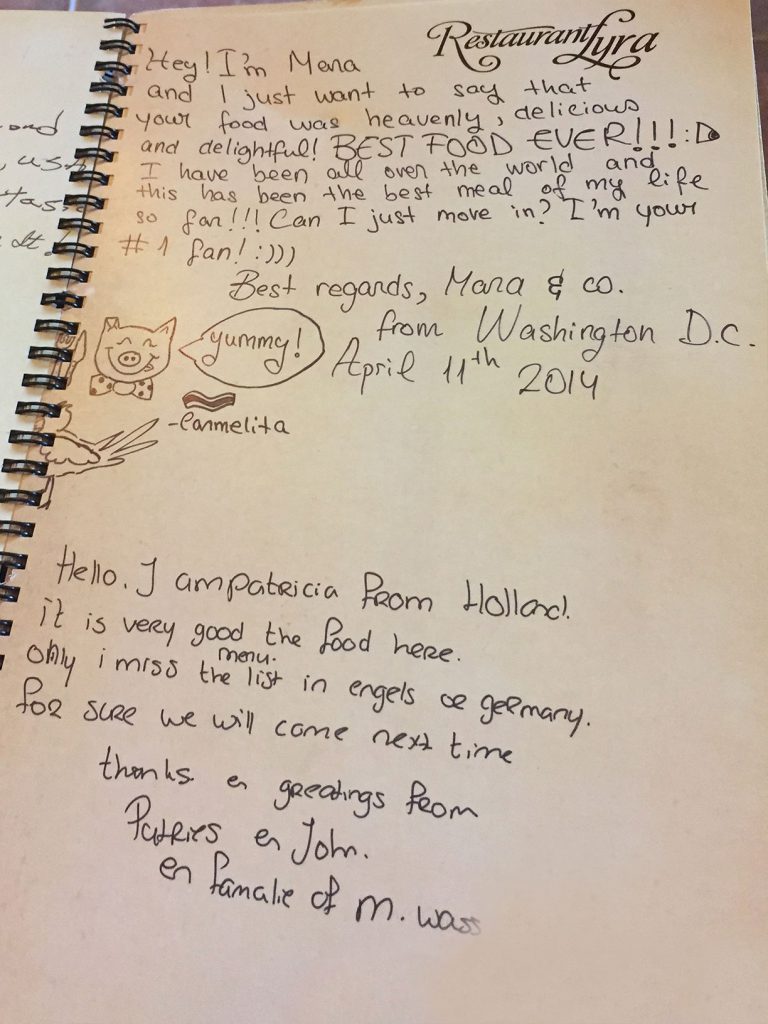 Restaurant Lyra
Hey! I'm Mana
and I just want to say that
your food was heavenly, delicious
and delightful! BEST FOOD EVER!!! :D
I have been all over the world and
this has been the best meal of my life
so far!!! Can I just move in? I'm your
#1 fan! :)))
Best regards, Mana & co.
from Washington D.C.
April 11th 2014
yummy!
-Carmelita
Hello. I am patricia from Holland.
it is very good the food here.
only i miss the menu. list in engels or germany.
for sure we will come next time
thanks en greatings from
Patries en John.
en famalie of M. wass